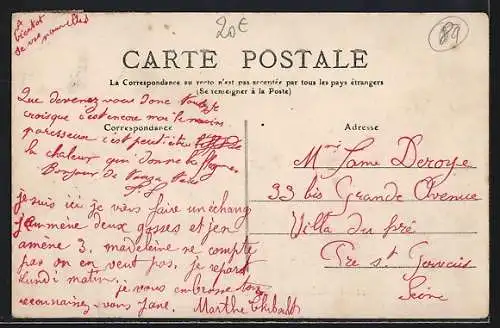 A
bientot
de vos nouvelles
20€
89
CARTE POSTALE
La Correspondance au recto n'est pas acceptée par tous les pays étrangers
(Se renseigner à la Poste)
Correspondance
Adresse
Que devenez vous donc
crois que c'est encore moi le moins
paresseux c'est peut être
la chaleur qui donne la
Bonjour de
je suis ici je vais faire un échange
j'emmène deux gosses et j'en
amène 3. madeleine ne compte
pas on en veut pas. je repart
lundi matin.
je vous embrosse
reconnainez vous Jane. Marthe Thibault
Mme Jame Deroye
33 bis Grande Avenue
Villa du pré
Pre st Gervais
Seine